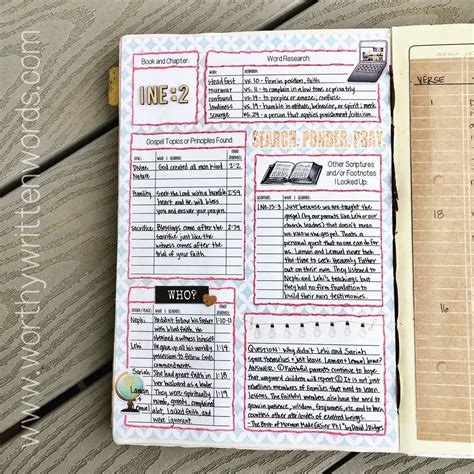 www.worthwrittenwords.com
Book and Chapter:
1NE:2
Word Research:
WORD: WHAT I LEARNED:
steadfast vs. 10 - firm in position, faith
murmur vs. 11 - to complain in a low tone or privately
confound vs. 14 - to perplex or amaze; confuse
lowliness vs. 19 - humble in attitude, behavior, or spirit; meek
scourge vs. 24 - a person that applies punishment/criticism
Gospel Topics or Principles Found:
TOPIC: WHAT I LEARNED: WHERE FOUND:
Divine Nature God created all man kind 2:2
Humility Seek the Lord with a humble 2:59
heart and He will bless
you and answer your prayers.
Sacrifice Blessings come after the 2:79
sacrifice, just like the
witness comes after the
trial of your faith.
SEARCH. PONDER. PRAY.
Other Scriptures
and/or Footnotes
I Looked Up:
SCRIPTURE: WHAT I LEARNED:
1 Ne. 15:3 Just because we are taught the
gospel (by our parents like Lehi or our
church leaders) that doesn't mean
we know the gospel. That's a
personal quest that no one can do for
us. Laman and Lemuel never took
the time to seek heavenly Father
out on their own. They listened to
Nephi and Lehi's teachings, but
they had no firm foundation to
build their own testimonies on.
WHO?
PERSON/PLACE: WHAT I LEARNED: WHERE FOUND:
Nephi He didn't follow his father 1:10-13
with blind faith. He
obtained a witness himself
Lehi He gave up all his worldly 1:19
possessions to follow God's
commandments.
Sariah She had great faith in 1:18
her husband as a leader
Laman They were spiritually 1:19
numb, greedy, complained
Lemuel a lot, lacked faith, and
were ignorant.
QUESTION: Why didn't Lehi and Sariah
spare themselves & just leave Laman & Lemuel home?
ANSWER: ① Faithful parents continue to hope
that wayward children will repent ② It is not just
rebellious members of families that need to learn
lessons. The faithful members also have the need to
grow in patience, wisdom, forgiveness, etc. and to learn
countless other attributes of exalted beings.
- The Book of Mormon Made Easier Pt. 1" by David J. Ridges
VERSE
18
16